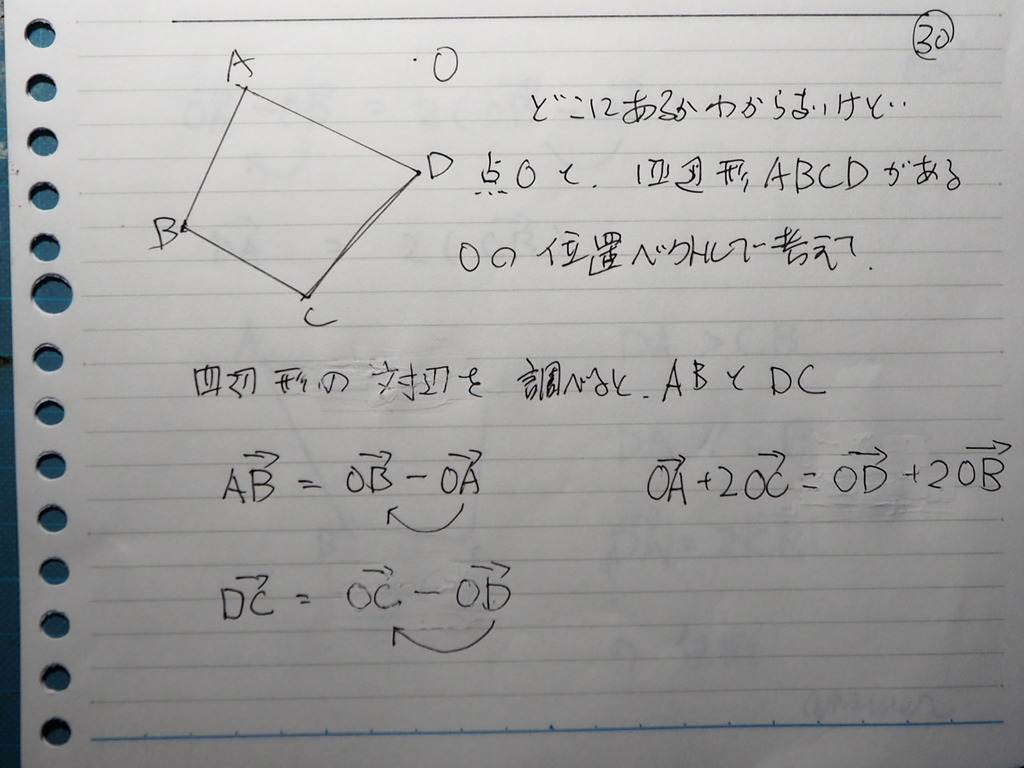 ㉚
A
・O
どこにあるかわからないけど‥
D
点Oと、四辺形ABCDがある
B
Oの位置ベクトルで考えて、
C
四辺形の対辺を調べると、ABとDC
AB→ = OB→ − OA→
OA→ + 2OC→ = OD→ + 2OB→
DC→ = OC→ − OD→